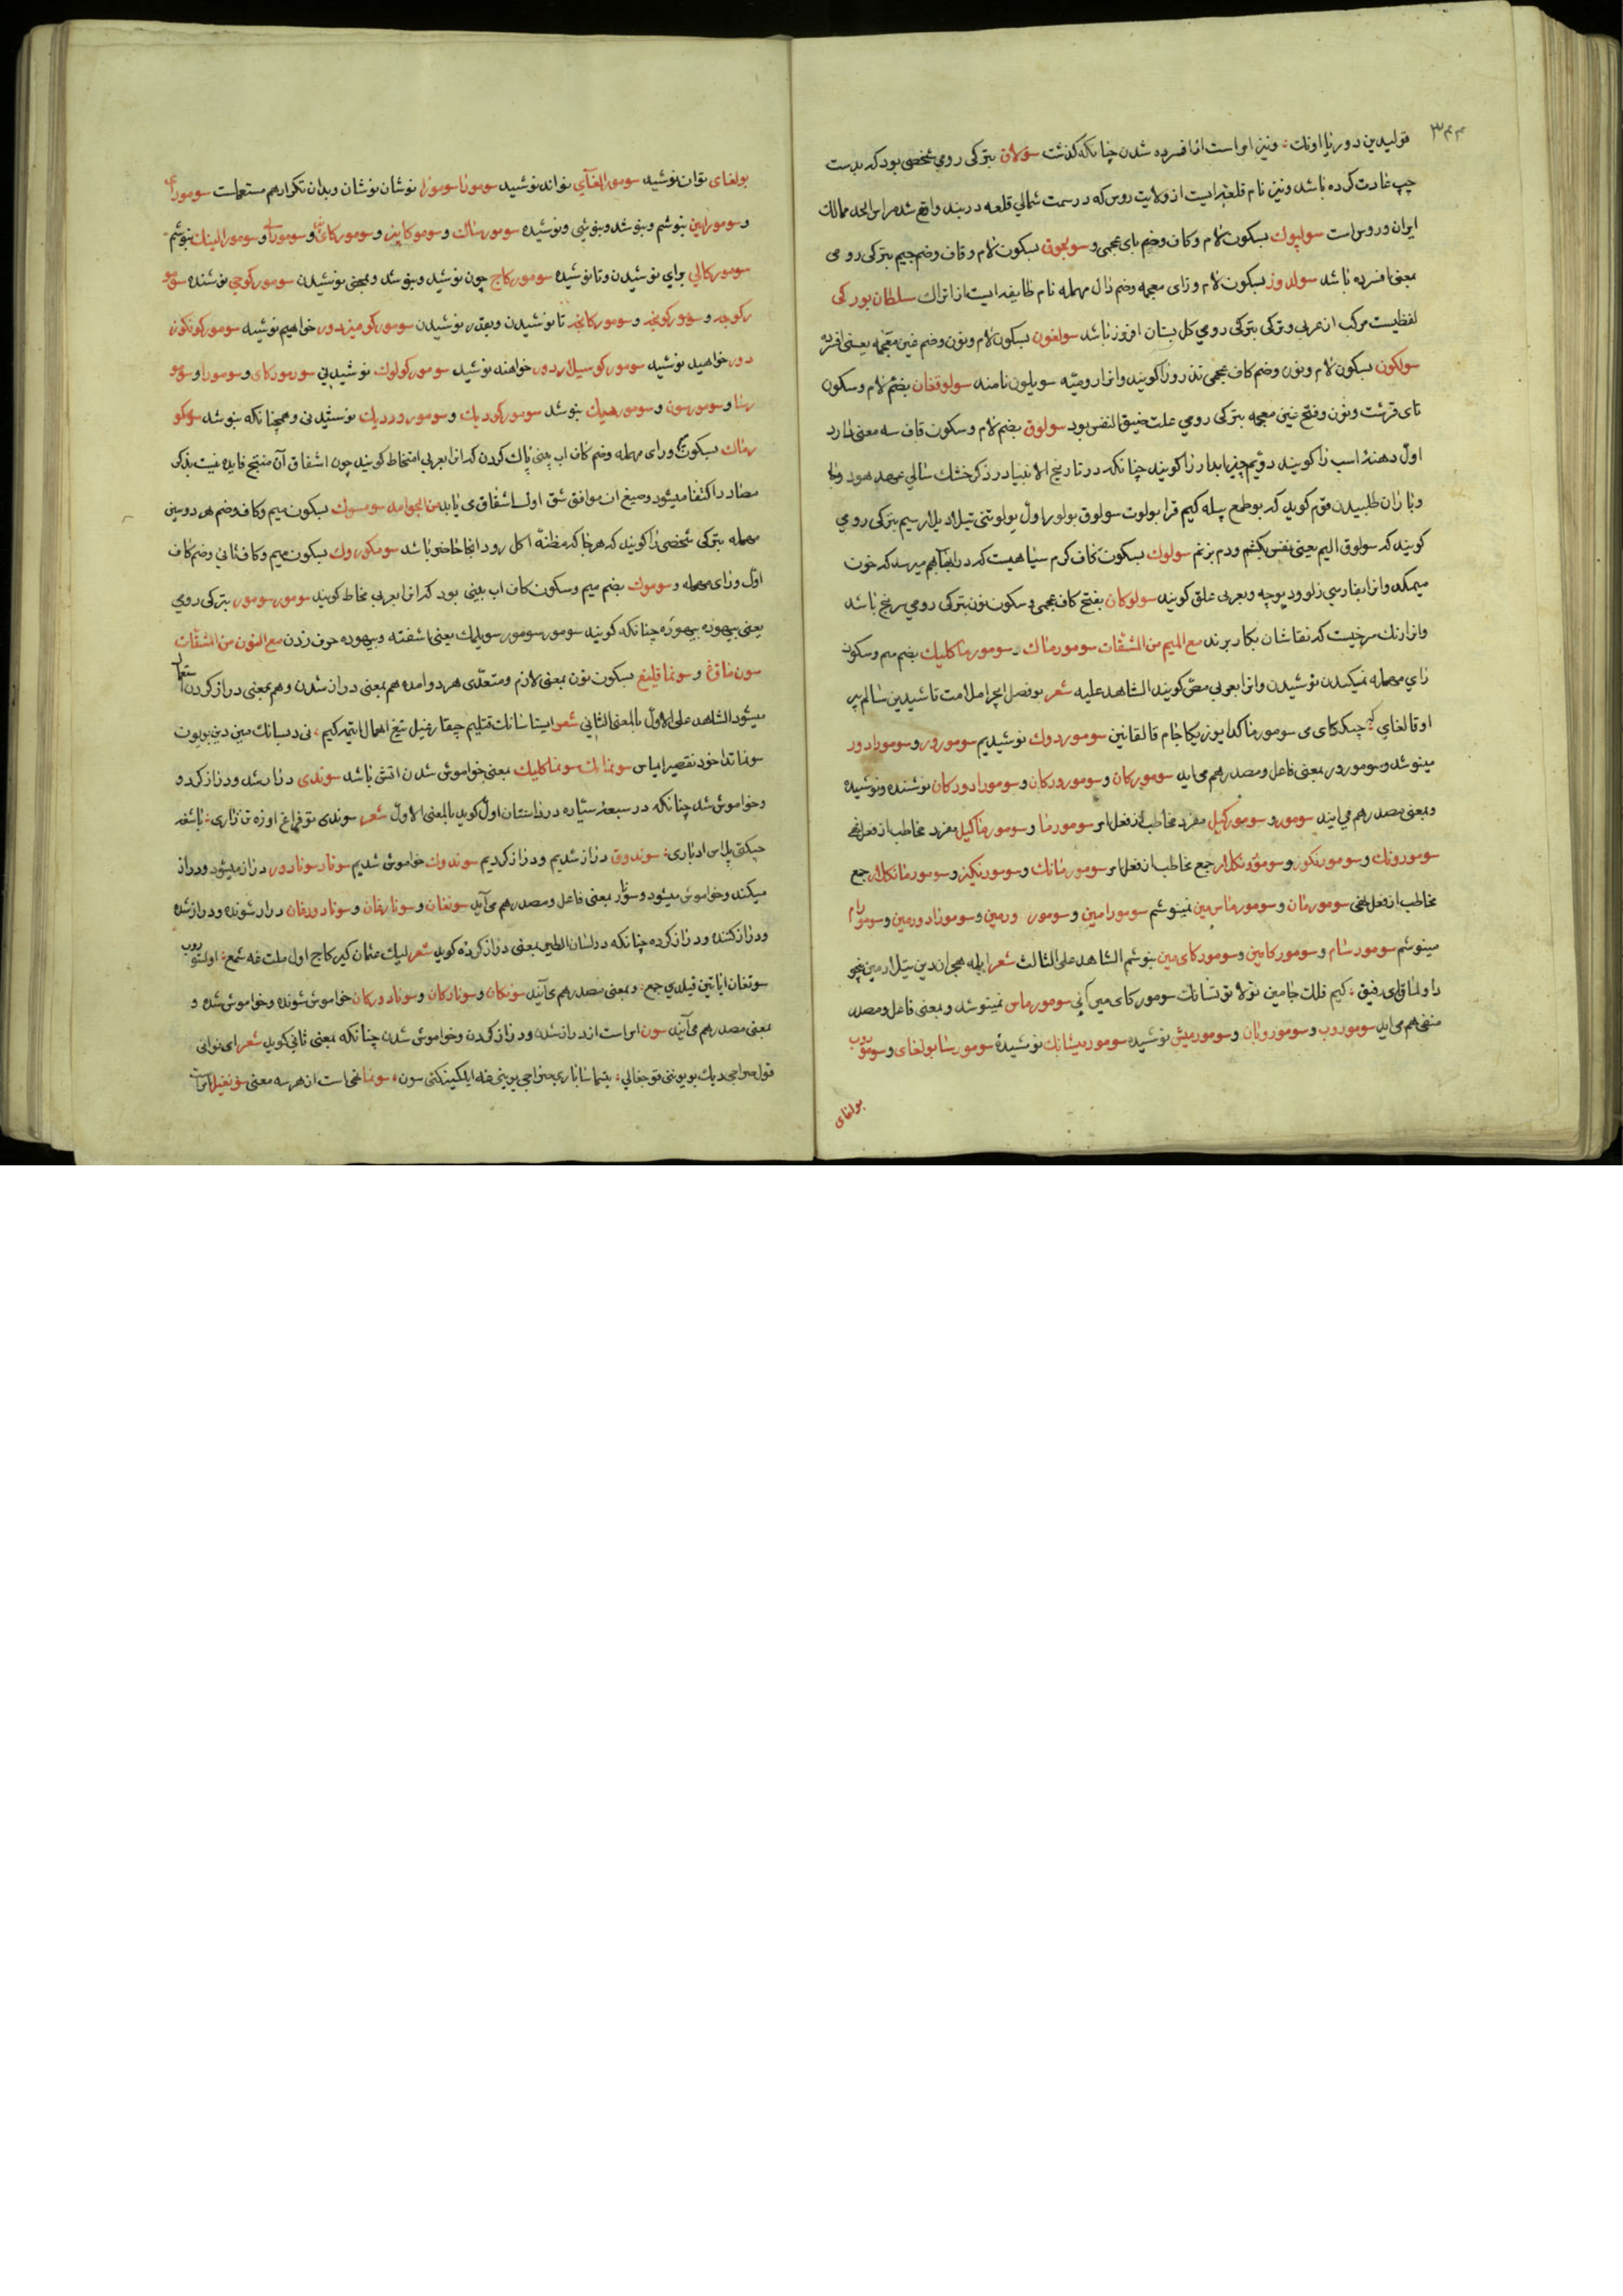 ۳۴۴
قولیدین دور یا اونک؛ ونیز امر است از افسرده شدن چنانکه گذشت سولاق بترکی رومی شخصی بود که بدست
چپ عادت کرده باشد ونیز نام قلعه ایست از ولایت روس که در سمت شمالی قلعه دربند واقع شده سرحد ممالک
ایران وروس است سولپوک بسکون لام وکاف وضم بای عجمی وسولجوق بسکون لام وقاف وضم جیم بترکی رومی
بمعنی افسرده باشد سولدوز بسکون لام وزای معجمه وضم دال مهمله نام طایفه ایست از اتراک سلطان بورکی
لفظیست مرکب از عربی وترکی بترکی رومی کل بستان افروز باشد سولغون بسکون لام ونون وضم غین معجمه یعنی افسرده
سولکون بسکون لام ونون وضم کاف عجمی تذرو را کویند وانرا رومیه سویلون نامند سولوقغان بضم لام وسکون
تای قرشت ونون وفتح غین معجمه بترکی رومی علت ضیق النفس بود سولوق بضم لام وسکون قاف سه معنی دارد
اول دهنه اسب را کویند دویم چیز ابدار را کویند چنانکه در تاریخ الانبیا در ذکر خشک سالی عهد هود
وباران طلبیدن قوم کوید که بو طمع بیله کیم قرا بولوت سولوق بولور اول بولوتنی تیلادیلار سیم بترکی رومی
کویند که سولوق الیم یعنی نفس بکشم ودم بزنم سولوک بسکون کاف کرم سیاهیست که در ابها بهم میرسد که خون
میمکد وانرا بفارسی زلو ودیوچه وبعربی علق کویند سولوکان بفتح کاف عجمی وسکون نون بترکی رومی سرنج باشد
وانرا رنک سرخیست که نقاشان بکار برند مع المیم من المشتقات سومورماک وسومورماکلیک بضم میم وسکون
رای مهمله نمکیدن نوشیدن وانرا بعربی مص کویند الشاهد علیه شعر بو فصل ایچرا ملامت تاشیدین سالم بیر
اوقالغای؛ که چیککای می سومورماکدا یوز ییکا جام قالقانین سوموردوک نوشیدیم سومورور وسومورادور
مینوشد وسومورور بمعنی فاعل ومصدر هم می اید سومورکان وسومورورکان وسومورادورکان نوشنده ونوشیده
وبمعنی مصدر هم می ایند سومور وسومورکیل مفرد مخاطب از فعل امر سومورما وسومورماکیل مفرد مخاطب از فعل نهی
سومورونک وسومورنکوز وسومورونکلار جمع مخاطب از فعل امر سومورمانک وسومورمنکیز وسومورمانکلار جمع
مخاطب از فعل نهی سومورمان وسومورماس مین نمینوشم سومورامین وسومور ورمین وسومورادورمین وسومورام
مینوشم سومورسام وسومورکامین وسومورکای مین بنوشم الشاهد علی الثالث شعر ایله هجراندین تیلار مین
داولماق ای رفیق؛ کیم فلک جامین تولا توتسانک سومورکای مین انی سومورماس نمینوشد وبمعنی فاعل ومصدر
منفی هم می اید سوموروب وسوموروبان وسومورمیش نوشیده سومورمیشانک نوشیدهٔ سومورسا بولغای وسوموروب
بولغای
بولغای توان نوشید سومورالغای تواند نوشید سومورا سومورا نوشان نوشان وبدان تکرار هم مستعملست سومورای
وسومورایین بنوشم وبنوشد وبنوشی ونوشیده سومورساک وسومورکابیز وسومورکای وسومورالی وسومورالینک بنوشیم
سومورکالی برای نوشیدن وتا نوشیده سومورکاج چون نوشید وبنوشد وبمعنی نوشیدن سومورکوجی نوشنده سومو
رکوجه وسومورکونجه وسومورکانجه تا نوشیدن وبقدر نوشیدن سومورکومیزدور خواهیم نوشید سومورکونکوز
دور خواهید نوشید سومورکوسیلاردور خواهند نوشید سومورکولوک نوشیدنی سومورکای وسومورا وسومو
رسا وسومورسون وسومورهیک بنوشد سومورکودیک وسوموروردیک نوشیدنی وهمچنانکه بنوشد سومکو
رماک بسکون ورای مهمله وضم کاف اب بینی پاک کردن که انرا بعربی امتخاط کویند چون اشتقاق آن منتج فایده نیست بذکر
مصادر اکتفا میشود وصیغ ان موافق شق اول اشتقاق می یابد من الجوامد سومسوک بسکون میم وکاف وضم هر دو سین
مهمله بترکی شخصی را کویند که هرجا که مظنهٔ اکل رود انجا حاضر باشد سومکوروک بسکون میم وکاف ثانی وضم کاف
اول ورای مهمله وسوموک بضم میم وسکون کاف اب بینی بود که انرا بعربی مخاط کویند سومور سومور بترکی رومی
یعنی بیهوده بیهوده چنانکه کویند سومور سومور سویلمک یعنی اشفته وبیهوده حرف زدن مع النون من المشتقات
سونماق وسونماقلیغ بسکون نون بمعنی لازم ومتعدی هر دو امده هم بمعنی دراز شدن وهم بمعنی دراز کردن استعمال
میشود الشاهد علی الاول بالمعنی الثانی شعر ایستاسانک قتلیم چیقارغیل تیغ اهمال ایتمه کیم؛ نی دیسانک مین دین بویون
سونماقدا خود تقصیر ایماس سونماک سونماکلیک بمعنی خاموش شدن اتش باشد سوندی دراز شد ودراز کرد و
وخاموش شد چنانکه در سبعهٔ سیاره در داستان اول کوید بالمعنی الاول شعر سوندی تو فراغ اوزه تن زاری؛ باشغه
چیکتی پلاس ادباری؛ سوندوق دراز شدیم ودراز کردیم سوندوک خاموش شدیم سونار سونادور دراز میشود ودراز
میکند وخاموش میشود وسونار بمعنی فاعل ومصدر هم می آید سونغان وسونارغان وسونادورغان دراز شونده ودراز شده
ودراز کننده ودراز کرده چنانکه در لسان الطیر بمعنی دراز کرده کوید شعر لیک عثمان کیرکاج اول ملت غه شمع؛ اولتوروب
سونغان ایاتین قیلدی جمع؛ وبمعنی مصدر هم می آیند سونکان وسونارکان وسونادورکان خاموش شونده وخاموش شده و
بمعنی مصدر هم می آیند سون امر است از دراز شدن ودراز کردن وخاموش شدن چنانکه بمعنی ثانی کوید شعر ای نوائی
قول صراحی دیک بویونی قوجغالی؛ یتماسا باری صراحی بوینی غه ایلکینکنی سون؛ سونما نهی است از هر سه معنی سونغیل